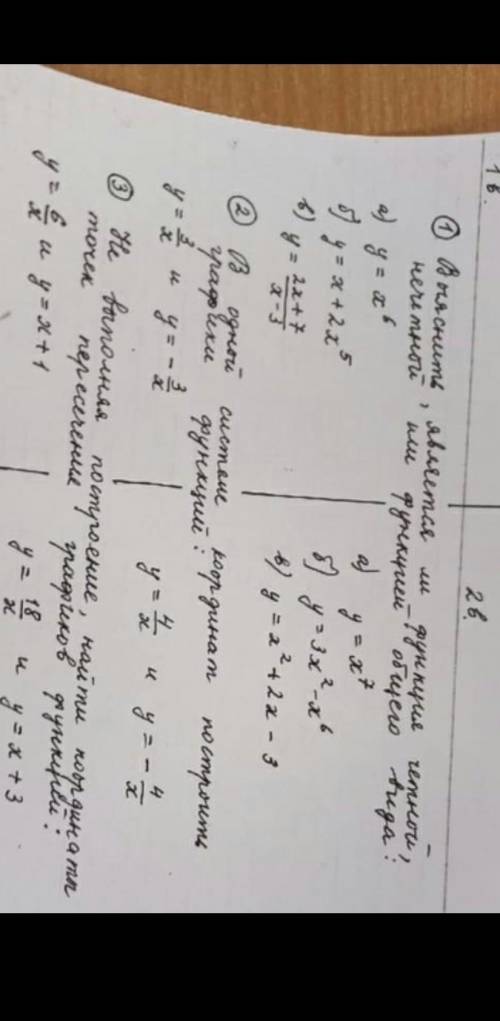 1в. 2в.
① Выяснить, является ли функция четной,
нечетной, или функцией общего вида:
а) y = x⁶ а) y = x⁷
б) y = x + 2x⁵ б) y = 3x² - x⁶
в) y = (2x+7)/(x-3) в) y = x² + 2x - 3
② В одной систем координат построить
графики функций:
y = 3/x и y = -3/x y = 4/x и y = -4/x
③ Не выполняя построение, найти координаты
точек пересечение графиков функций:
y = 6/x и y = x+1 y = 18/x и y = x+3